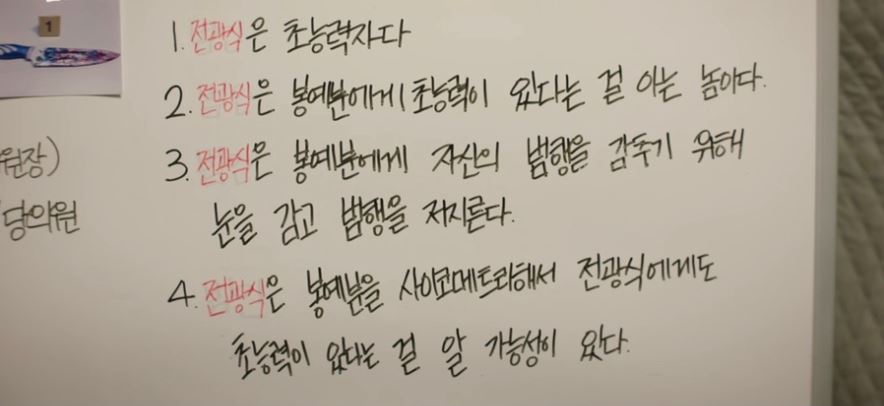 1
1. 전광식은 초능력자다
2. 전광식은 봉예분에게 초능력이 있다는 걸 아는 놈이다.
원장)
3. 전광식은 봉예분에게 자신의 범행을 감추기 위해
당의원
눈을 감고 범행을 저지른다.
4. 전광식은 봉예분을 사이코메트리해서 전광식에게도
초능력이 있다는 걸 알 가능성이 있다.